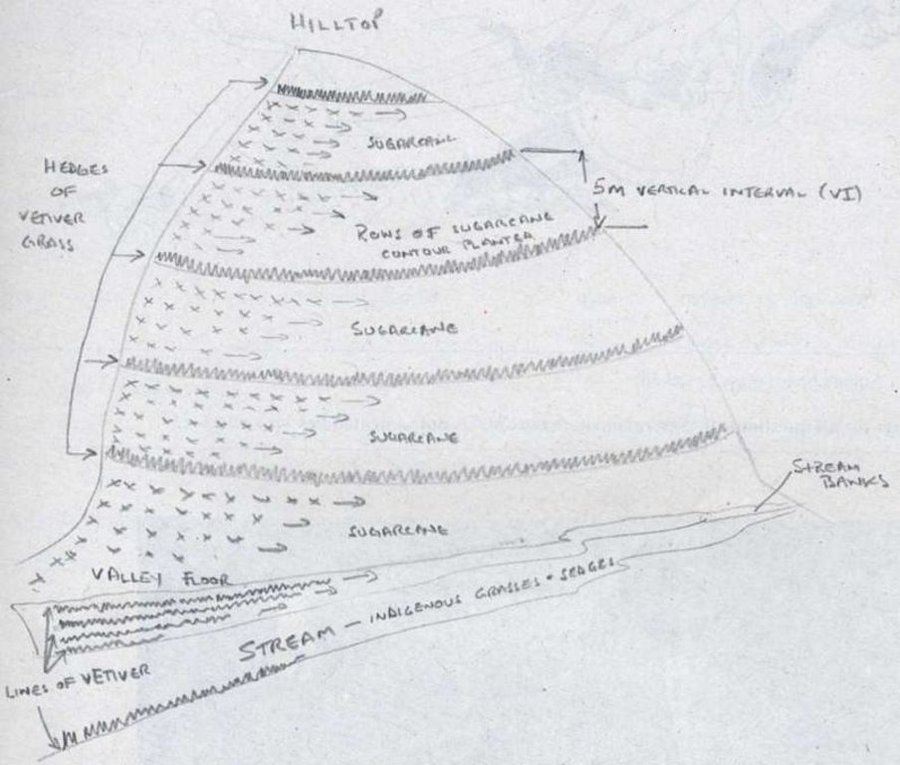 HILLTOP
SUGARCANE
HEDGES
OF
VETIVER
GRASS
5M VERTICAL INTERVAL (VI)
ROWS OF SUGARCANE
CONTOUR PLANTED
SUGARCANE
SUGARCANE
STREAM
BANKS
SUGARCANE
VALLEY FLOOR
STREAM - INDIGENOUS GRASSES + SEDGES
LINES OF VETIVER